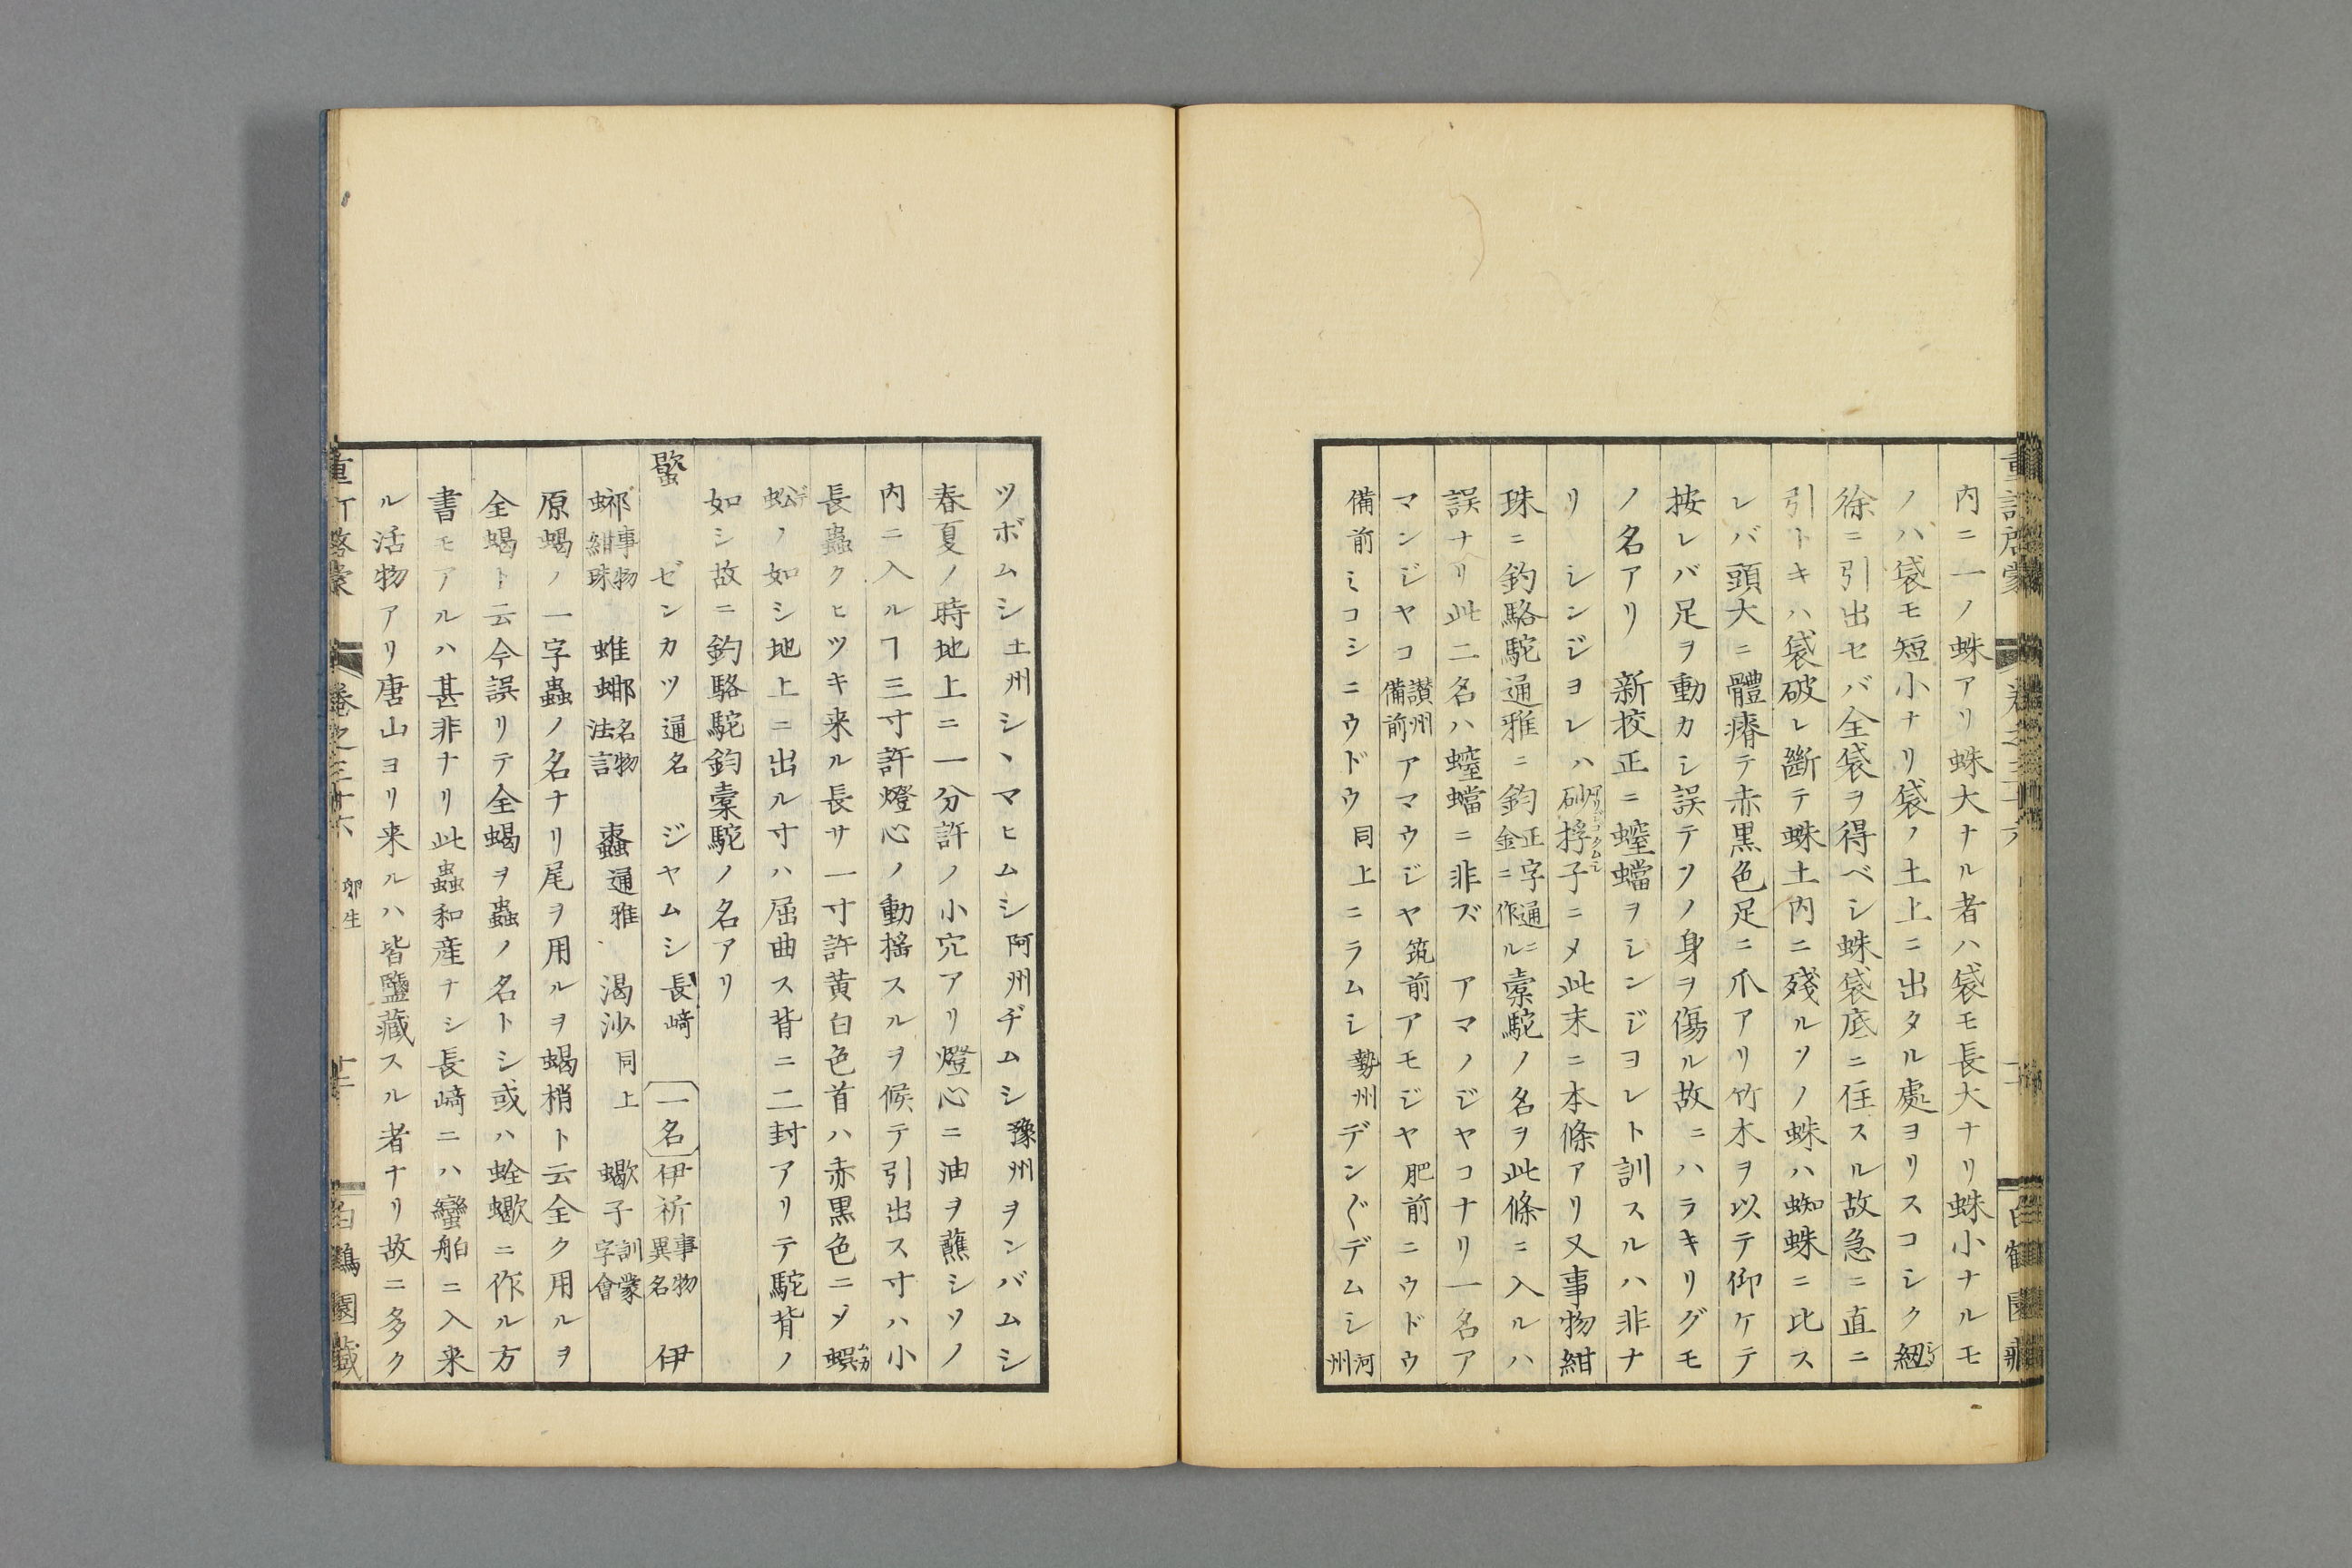 内ニ一ノ蛛アリ蛛大ナル者ハ袋モ長大ナリ蛛小ナルモ
ノハ袋モ短小ナリ袋ノ土上ニ出タル處ヨリスコシク紐
徐ニ引出セバ全袋ヲ得ベシ蛛袋底ニ住スル故急ニ直ニ
引トキハ袋破レ斷テ蛛土内ニ殘ルソノ蛛ハ蜘蛛ニ比ス
レバ頭大ニ體瘠テ赤黒色足ニ爪アリ竹木ヲ以テ仰ケテ
按レバ足ヲ動カシ誤テソノ身ヲ傷ル故ニハラキリグモ
ノ名アリ 新挍正ニ螲蟷ヲシンジヨレト訓スルハ非ナ
リ シンジヨレハ砂挼子ニメ此末ニ本條アリ又事物紺
珠ニ釣駱駝通雅ニ鈞正字通ニ金ニ作ル橐駝ノ名ヲ此條ニ入ルハ
誤ナリ此二名ハ螲蟷ニ非ズ アマノジヤコナリ一名ア
マンジヤコ讃州備前アマウジヤ筑前アモジヤ肥前ニウドウ
備前ミコシニウドウ同上ニラムシ勢州デン〲デムシ河州
ツボムシ土州シヽマヒムシ阿州ヂムシ豫州ヲンバムシ
春夏ノ時地上ニ一分許ノ小穴アリ燈心ニ油ヲ蘸シソノ
内ニ入ルヿ三寸許燈心ノ動搖スルヲ候テ引出ス寸ハ小
長蟲クヒツキ来ル長サ一寸許黄白色首ハ赤黒色ニメ蜈
蚣ノ如シ地上ニ出ル寸ハ屈曲ス背ニ二封アリテ駝背ノ
如シ故ニ釣駱駝鈞橐駝ノ名アリ
蠍 ゼンカツ通名 ジヤムシ長﨑 一名伊祈事物異名 伊
蜥事物紺珠 蜼蝍名物法言 蠚通雅 渴沙同上 蠍子訓蒙字會
原蝎ノ一字蟲ノ名ナリ尾ヲ用ルヲ蝎梢ト云全ク用ルヲ
全蝎ト云今誤リテ全蝎ヲ蟲ノ名トシ或ハ蛉蠍ニ作ル方
書モアルハ甚非ナリ此蟲和産ナシ長﨑ニハ蠻舶ニ入来
ル活物アリ唐山ヨリ来ルハ皆鹽藏スル者ナリ故ニ多ク
卷之三十六 卵生 十二 白鶴園藏